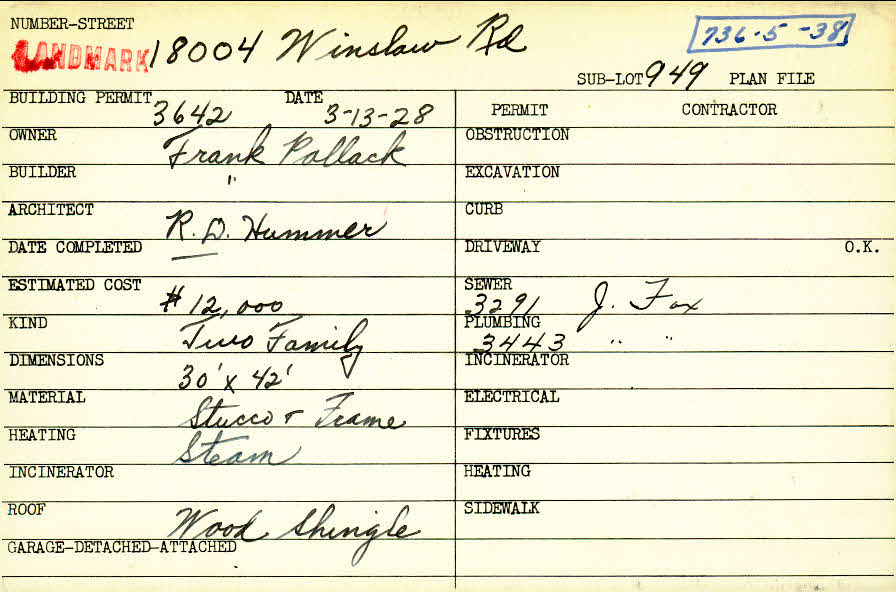 NUMBER-STREET
LANDMARK 18004 Winslow Rd
736-5-38
SUB-LOT 949 PLAN FILE
BUILDING PERMIT 3642 DATE 3-13-28
OWNER Frank Pollack
BUILDER "
ARCHITECT R. D. Hummer
DATE COMPLETED —
ESTIMATED COST $12,000
KIND Two Family
DIMENSIONS 30' x 42'
MATERIAL Stucco & Frame
HEATING Steam
INCINERATOR
ROOF Wood Shingle
GARAGE-DETACHED-ATTACHED
PERMIT CONTRACTOR
OBSTRUCTION
EXCAVATION
CURB
DRIVEWAY O.K.
SEWER 3291 J. Fox
PLUMBING 3443 " "
INCINERATOR
ELECTRICAL
FIXTURES
HEATING
SIDEWALK